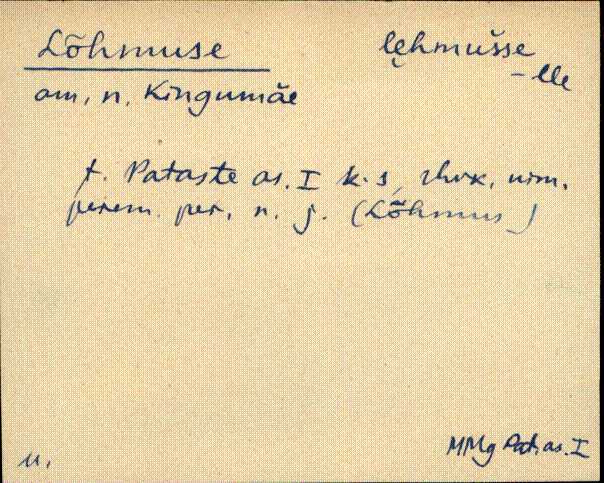 Lõhmuse lȩhmušse
- lle
om. n. Kingumäe
t. Pataste as. I k. s, rhvk. nim.
perem. per. n. j. (Lõhmus)
u. MMg Pat. as. I